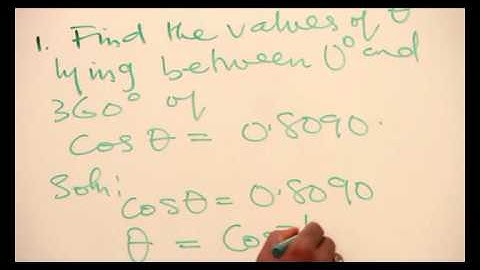 1. Find the values of θ
lying between 0° and
360° of
cos θ = 0.8090.
Soln:
cosθ = 0.8090
θ = Cos⁻¹